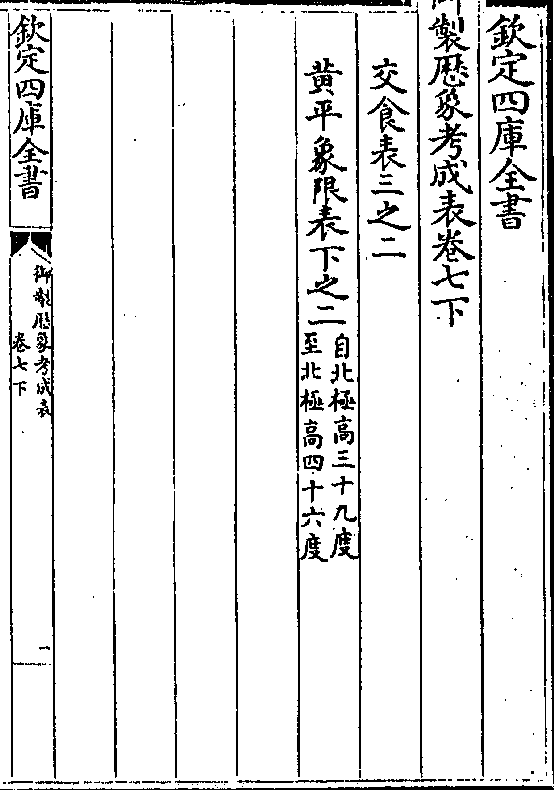 欽定四庫全書
御製厯象考成表卷七下
交食表三之二
黄平象限表下之二
自北極高三十九度
至北極高四十六度
欽定四庫全書
御製厯象考成表
卷七下
一